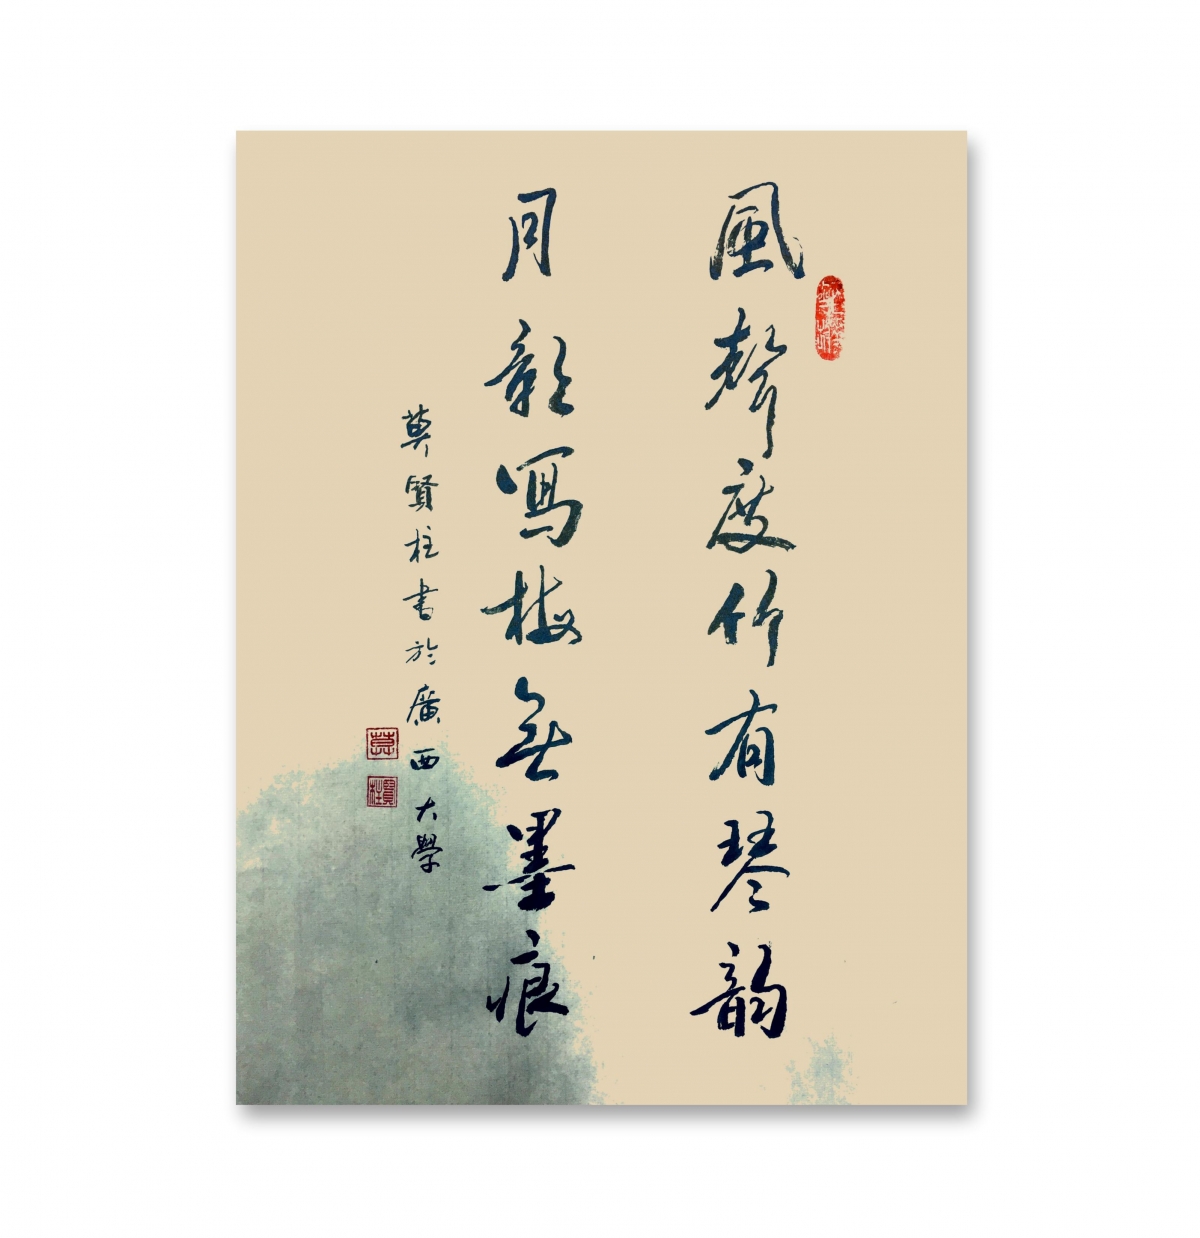 風聲度竹有琴韵
月影寫梅無墨痕
莫賢柱書於廣西大學
莫
賢柱